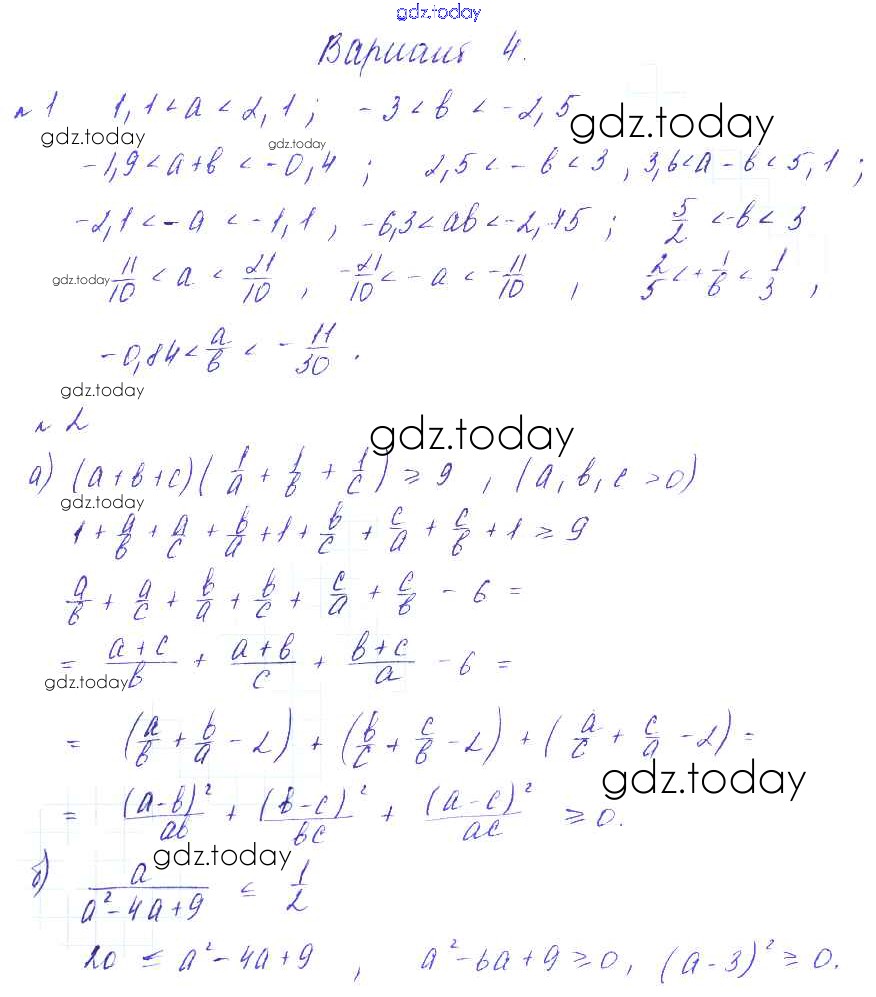 gdz.today
Вариант 4.
№1 1,1 < a < 2,1 ; -3 < b < -2,5
gdz.today gdz.today gdz.today
-1,9 < a+b < -0,4 ; 2,5 < -b < 3 , 3,6 < a - b < 5,1 ;
-2,1 < -a < -1,1 , -6,3 < ab < -2,75 ; 5/2 < -b < 3
gdz.today 11/10 < a < 21/10 , -21/10 < -a < -11/10 , 2/5 < -1/b < 1/3 ,
-0,84 < a/b < -11/30 .
gdz.today
№2 gdz.today
а) (a+b+c)(1/a + 1/b + 1/c) ≥ 9 , (a, b, c > 0)
gdz.today
1 + a/b + a/c + b/a + 1 + b/c + c/a + c/b + 1 ≥ 9
a/b + a/c + b/a + b/c + c/a + c/b - 6 =
= (a+c)/b + (a+b)/c + (b+c)/a - 6 =
gdz.today
= (a/b + b/a - 2) + (b/c + c/b - 2) + (a/c + c/a - 2) =
gdz.today
= (a-b)²/ab + (b-c)²/bc + (a-c)²/ac ≥ 0.
gdz.today
б) a/(a²-4a+9) ≤ 1/2
20 ≤ a²-4a+9 , a²-6a+9 ≥ 0, (a-3)² ≥ 0.